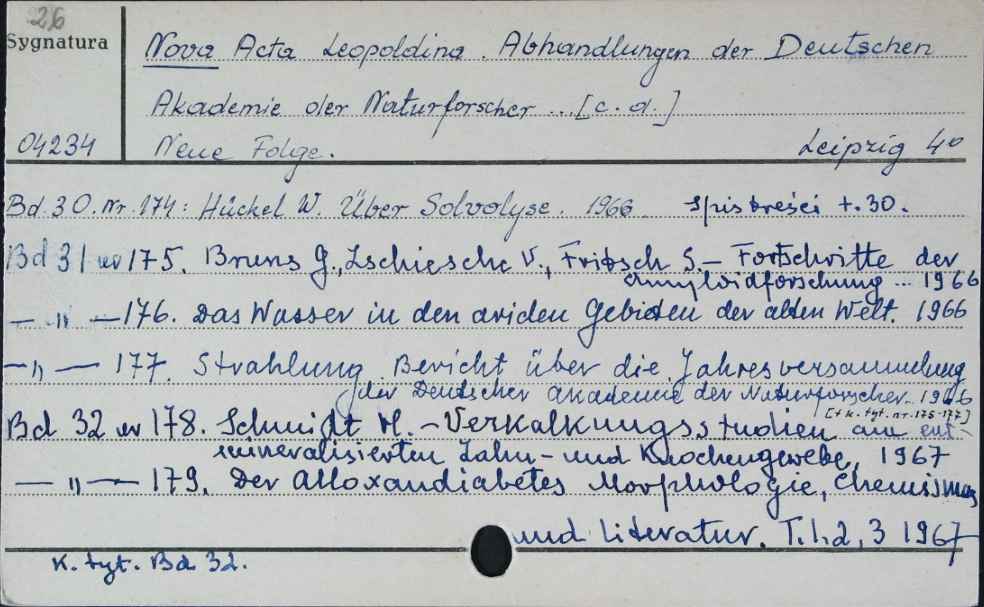 26
Sygnatura
04234
Nova Acta Leopoldina. Abhandlungen der Deutschen
Akademie der Naturforscher ... [c.d.]
Neue Folge. Leipzig 4°
Bd. 30. nr. 174: Hückel W. Über Solvolyse. 1966. spis treści t. 30.
Bd 31 nr 175. Bruns G., Zschiesche V., Fritsch S. – Fortschritte der
Amyloidforschung ... 1966
— „ — 176. Das Wasser in den ariden Gebieten der alten Welt. 1966
— „ — 177. Strahlung. Bericht über die Jahresversammlung
der Deutscher Akademie der Naturforscher. 1966
[+ k. tyt. nr. 175-177]
Bd 32 nr 178. Schmidt H. – Verkalkungsstudien am ent-
mineralisierten Zahn- und Knochengewebe, 1967
— „ — 179. Der Alloxandiabetes Morphologie, Chemismus
und Literatur. T. 1, 2, 3 1967
K. tyt. Bd 32.